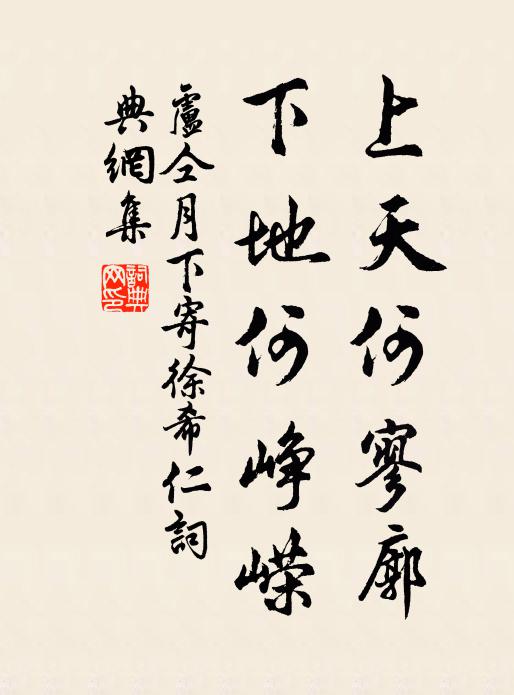 上天何寥廓
下地何崢嶸
盧仝月下寄徐希仁詞
典網集
詞典
网印